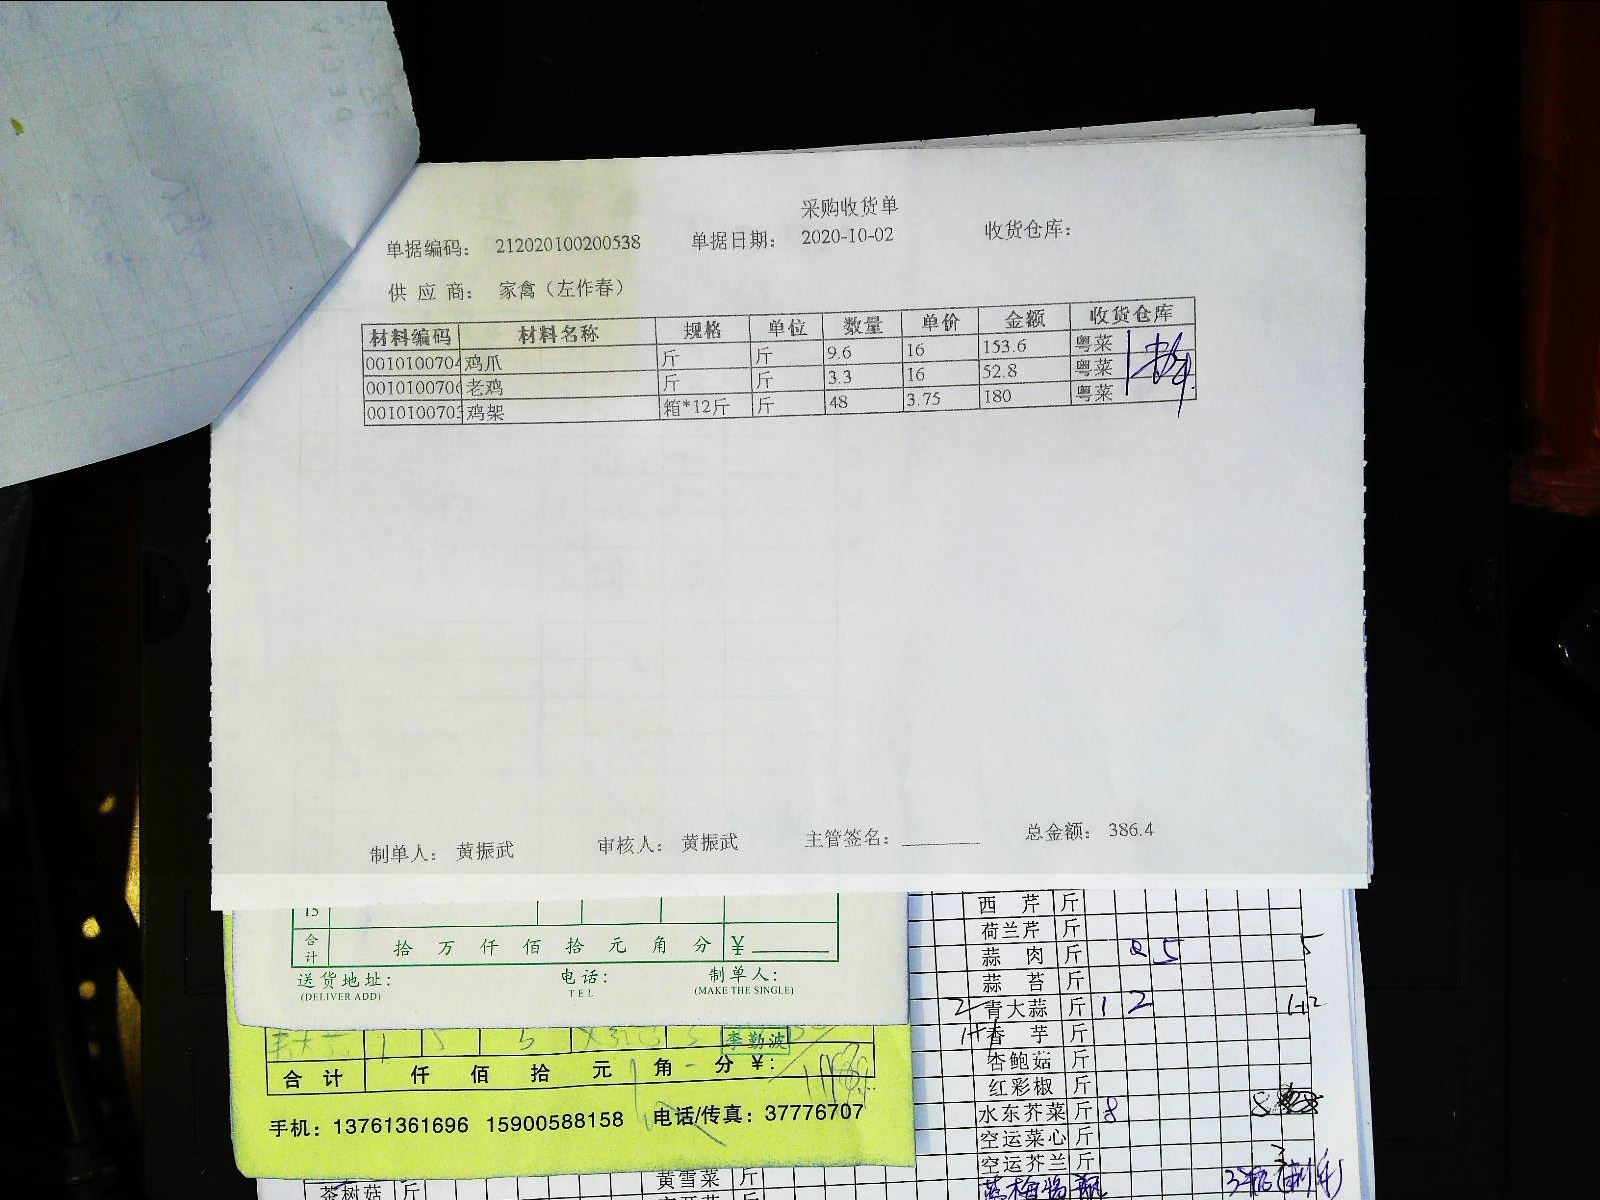 采购收货单
单据编码： 212020100200538 单据日期： 2020-10-02 收货仓库：
供 应 商： 家禽（左作春）
材料编码 材料名称 规格 单位 数量 单价 金额 收货仓库
0010100704 鸡爪 斤 斤 9.6 16 153.6 粤菜
0010100706 老鸡 斤 斤 3.3 16 52.8 粤菜
0010100703 鸡架 箱*12斤 斤 48 3.75 180 粤菜
制单人： 黄振武 审核人： 黄振武 主管签名： 总金额： 386.4
15
合计 拾 万 仟 佰 拾 元 角 分 ¥
送货地址： 电话： 制单人：
(DELIVER ADD) TEL (MAKE THE SINGLE)
李勤波
合 计 仟 佰 拾 元 角 分 ¥:
手机：13761361696 15900588158 电话/传真：37776707
西 芹 斤
荷兰芹 斤
蒜 肉 斤 5
蒜 苔 斤
2 青大蒜 斤 1 2 1+2
香 芋 斤
杏鲍菇 斤
红彩椒 斤
水东芥菜 斤 8 8
空运菜心 斤
空运芥兰 斤
黄雪菜 斤
茶树菇 斤